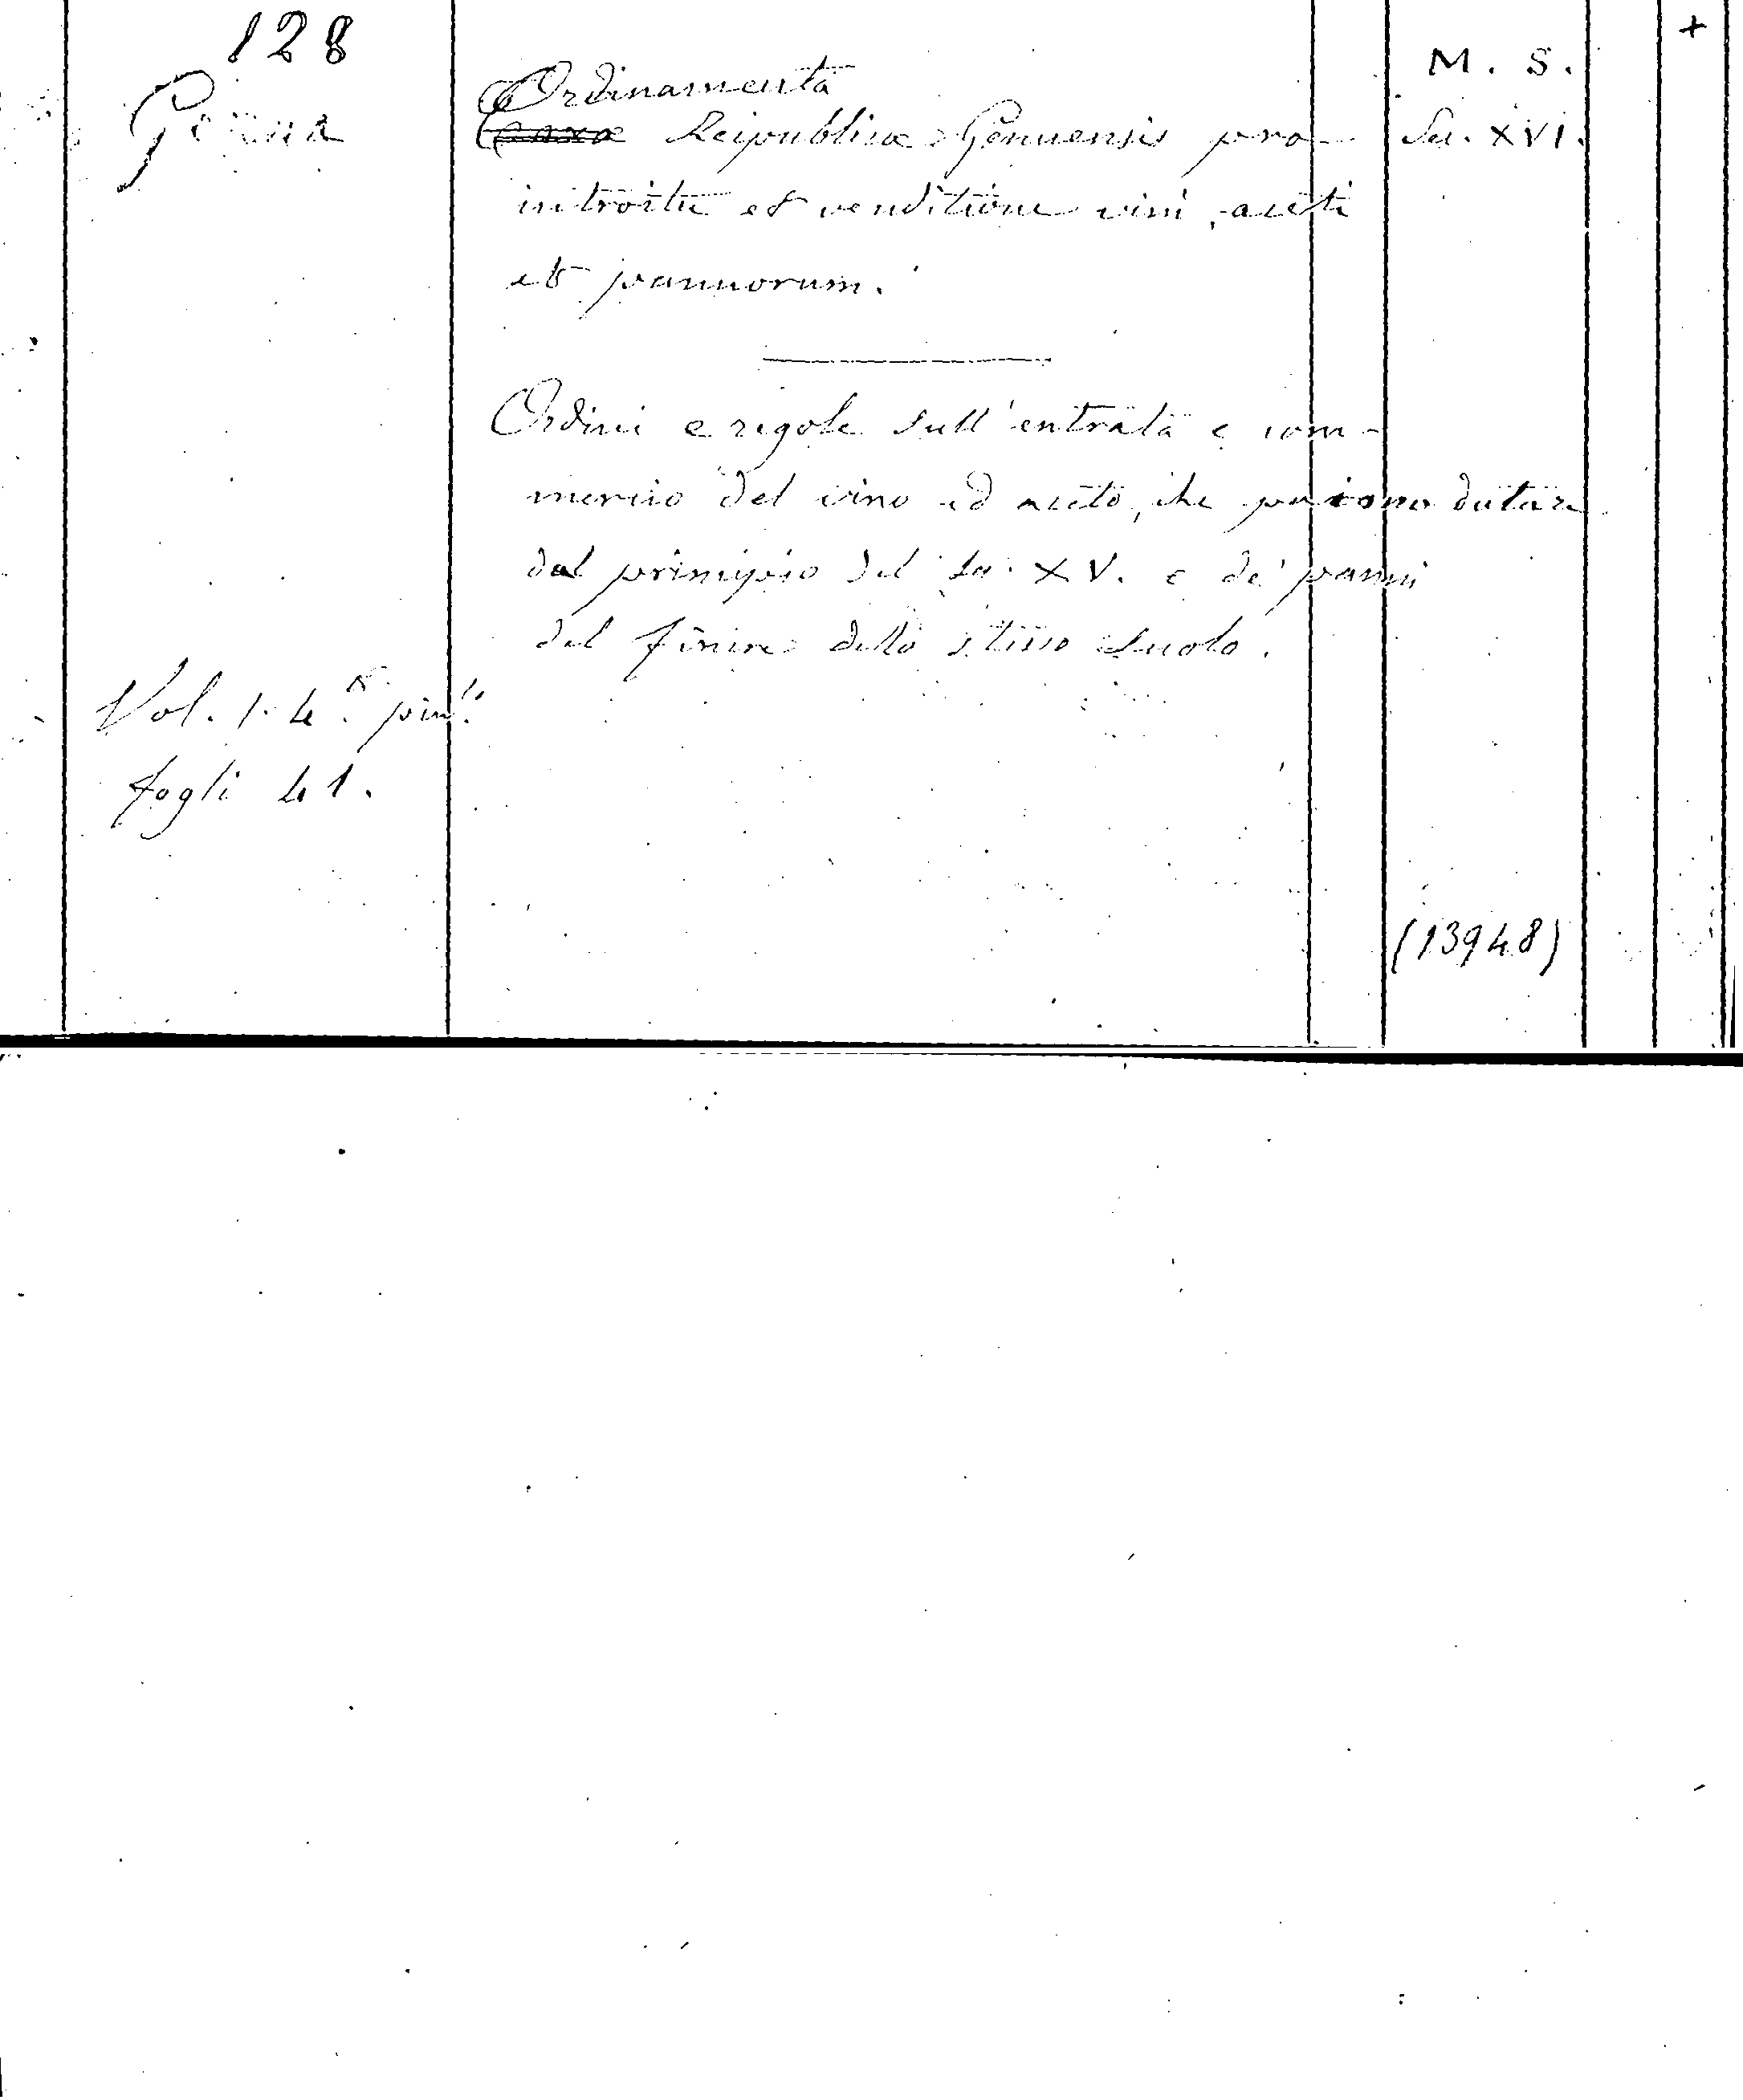 128
Genova
Ordinamenta
Reipublicæ Genuensis pro
introitu et venditione vini, aceti
et pannorum.
M. S.
Sec. XVI.
+
Ordini e regole sull'entrata e com-
mercio del vino ed aceto, che paiono datare
dal principio del Sec. XV. e de' panni
del finire dello stesso secolo.
Vol. 1. 4.°
fogli 41.
(13948)